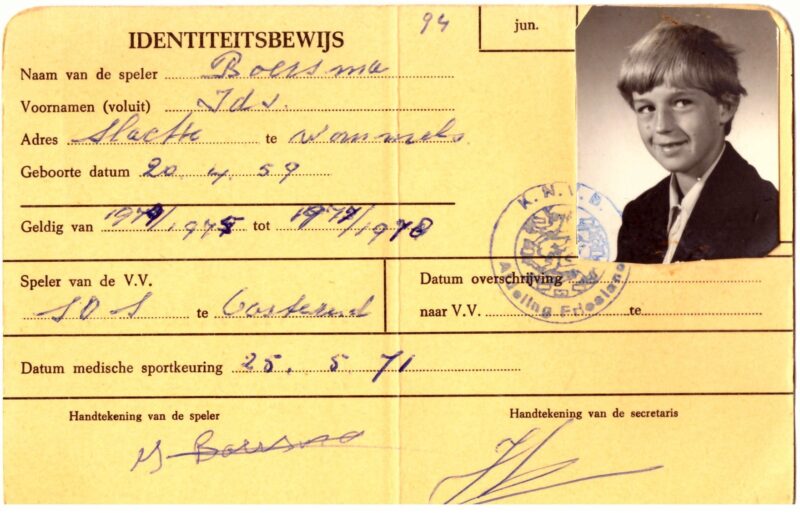 94
jun.
IDENTITEITSBEWIJS
Naam van de speler Boersma
Voornamen (voluit) Ids.
Adres Slachte te Wommels
Geboorte datum 20 4 59
Geldig van 1974/1975 tot 1977/1978
K.N.V.B.
Afdeling Friesland
Speler van de V.V.
SDS te Oosterend
Datum overschrijving
naar V.V. te
Datum medische sportkeuring 25. 5 71
Handtekening van de speler
Handtekening van de secretaris
Boersma